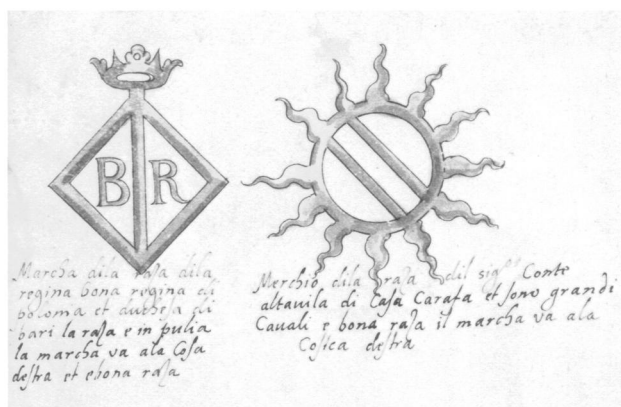 B R
Marcha dila raza dila
regina bona regina di
poloma et duchesa di
bari la raza e in pulia
la marcha va ala Cosa
destra et e bona raza
Merchio dila raza dil sigr Conte
altavila di Casa Carafa et sono grandi
Cavali e bona raza il marcha va ala
Cosica destra